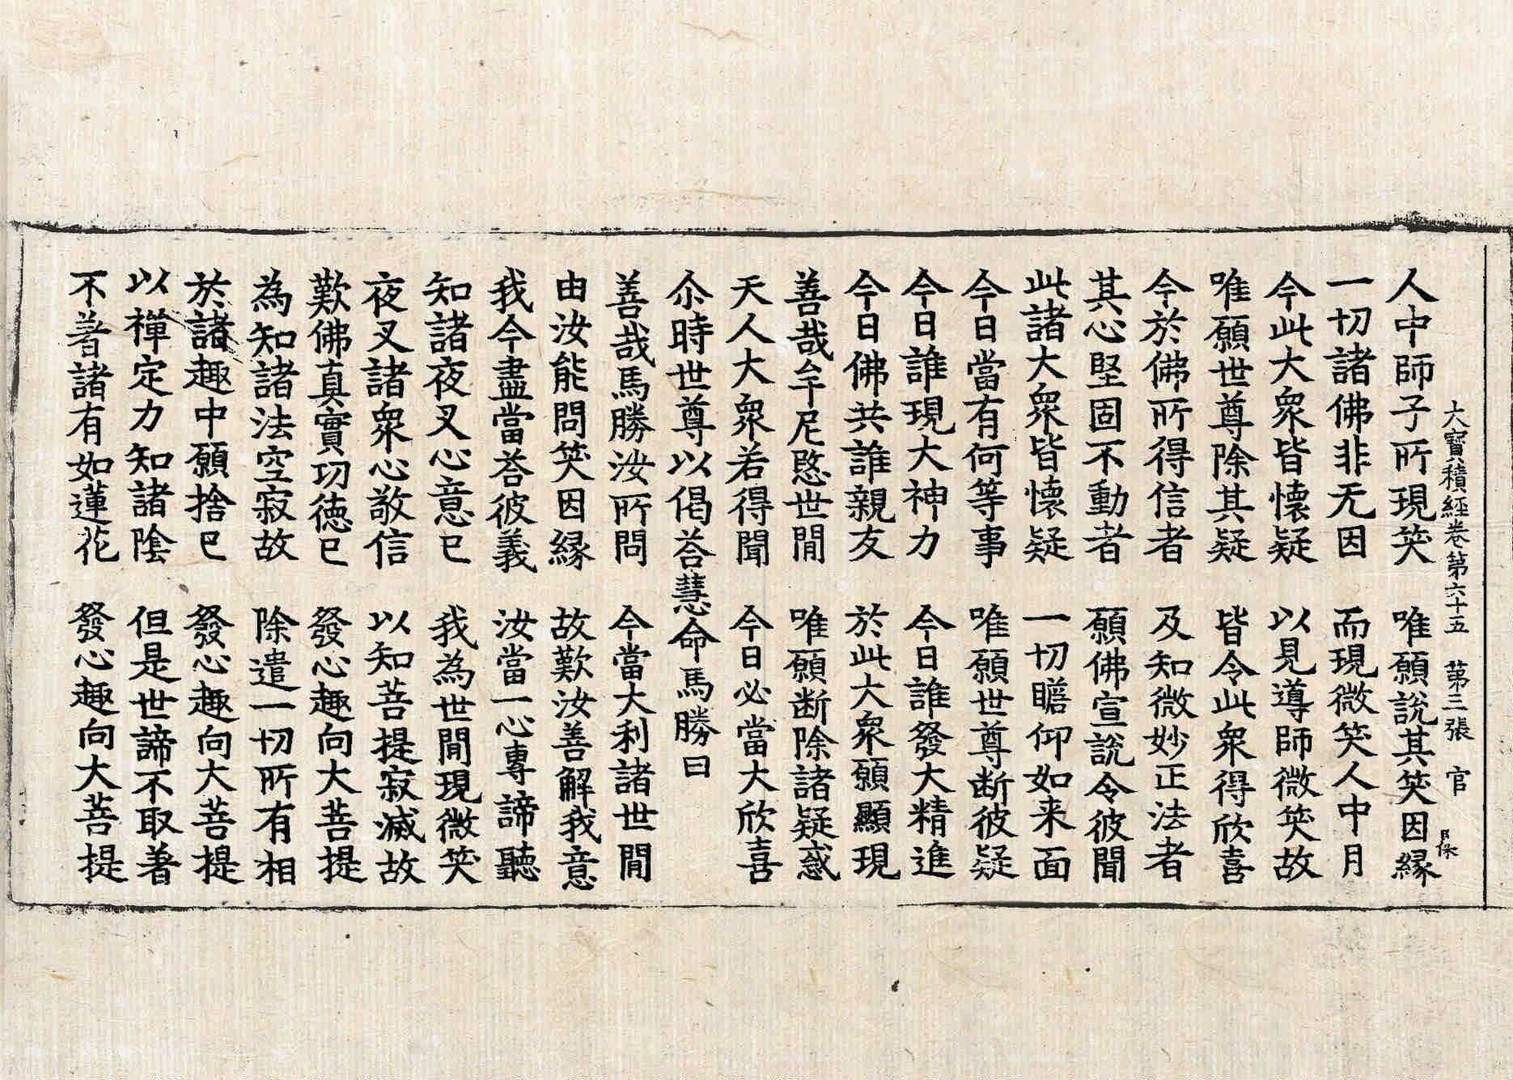 大寶積經卷第六十五　第三張　官
人中師子所現笑　唯願說其笑因縁
一切諸佛非无因　而現微笑人中月
今此大衆皆懷疑　以見導師微笑故
唯願世尊除其疑　皆令此衆得欣喜
今於佛所得信者　及知微妙正法者
其心堅固不動者　願佛宣說令彼聞
此諸大衆皆懷疑　一切瞻仰如来面
今日當有何等事　唯願世尊断彼疑
今日誰現大神力　今日誰發大精進
今日佛共誰親友　於此大衆願顯現
善哉牟尼愍世閒　唯願断除諸疑惑
天人大衆若得聞　今日必當大欣喜
尒時世尊以偈荅慧命馬勝曰
善哉馬勝汝所問　今當大利諸世閒
由汝能問笑因縁　故歎汝善解我意
我今盡當荅彼義　汝當一心專諦聽
知諸夜叉心意已　我為世閒現微笑
夜叉諸衆心敬信　以知菩提寂滅故
歎佛真實功徳已　發心趣向大菩提
為知諸法空寂故　除遣一切所有相
於諸趣中願捨已　發心趣向大菩提
以禪定力知諸陰　但是世諦不取著
不著諸有如蓮花　發心趣向大菩提